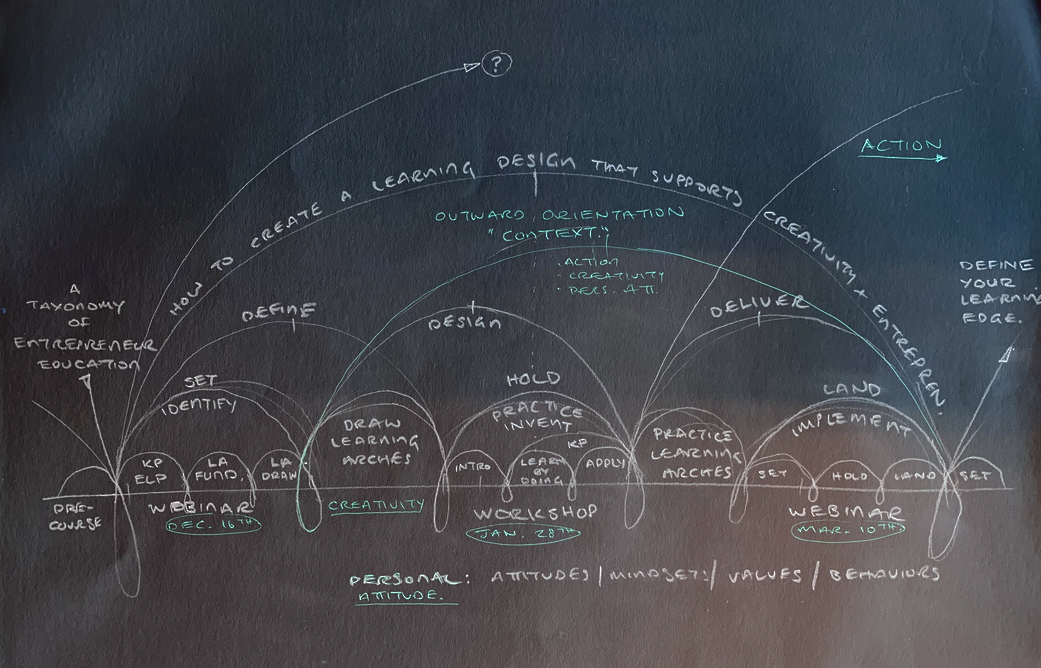 ?
ACTION
HOW TO CREATE A LEARNING DESIGN THAT SUPPORTS CREATIVITY + ENTREPREN.
OUTWARD ORIENTATION
"CONTEXT."
· ACTION
- CREATIVITY
· PERS. ATT.
A
TAXONOMY
OF
ENTREPRENEUR
EDUCATION
DEFINE
YOUR
LEARNING
EDGE.
DEFINE
DESIGN
DELIVER
SET
IDENTIFY
HOLD
PRACTICE
INVENT
LAND
IMPLEMENT
DRAW
LEARNING
ARCHES
PRACTICE
LEARNING
ARCHES
KP
ELP
LA
FUND.
LA
DRAW
INTRO
LEARN
BY
DOING
KP
APPLY
SET
HOLD
LAND
SET
PRE-
COURSE
WEBINAR
DEC. 16TH
CREATIVITY
WORKSHOP
JAN. 28TH
WEBINAR
MAR. 10TH
PERSONAL: ATTITUDES / MINDSETS / VALUES / BEHAVIORS
ATTITUDE.